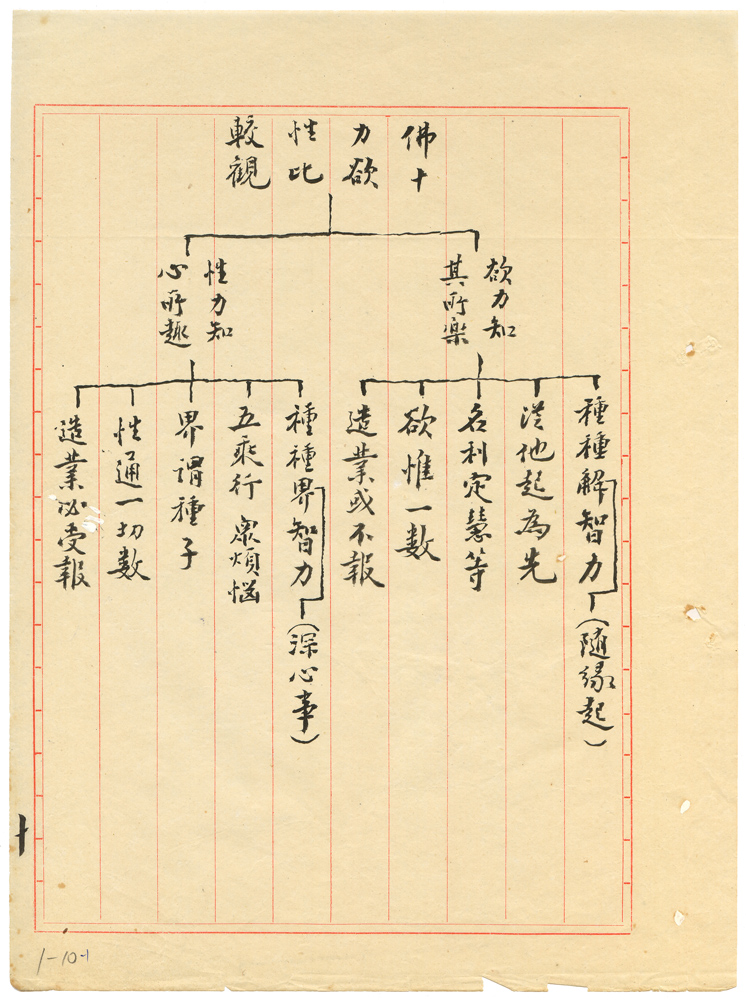 佛十
力欲
性比
較觀
欲力知
其所樂
種種解智力
(隨緣起)
從他起為先
名利定慧等
欲惟一數
造業或不報
性力知
心所趣
種種界智力
(深心事)
五乘行 衆煩惱
界謂種子
性通一切數
造業必受報
十
1-10-1